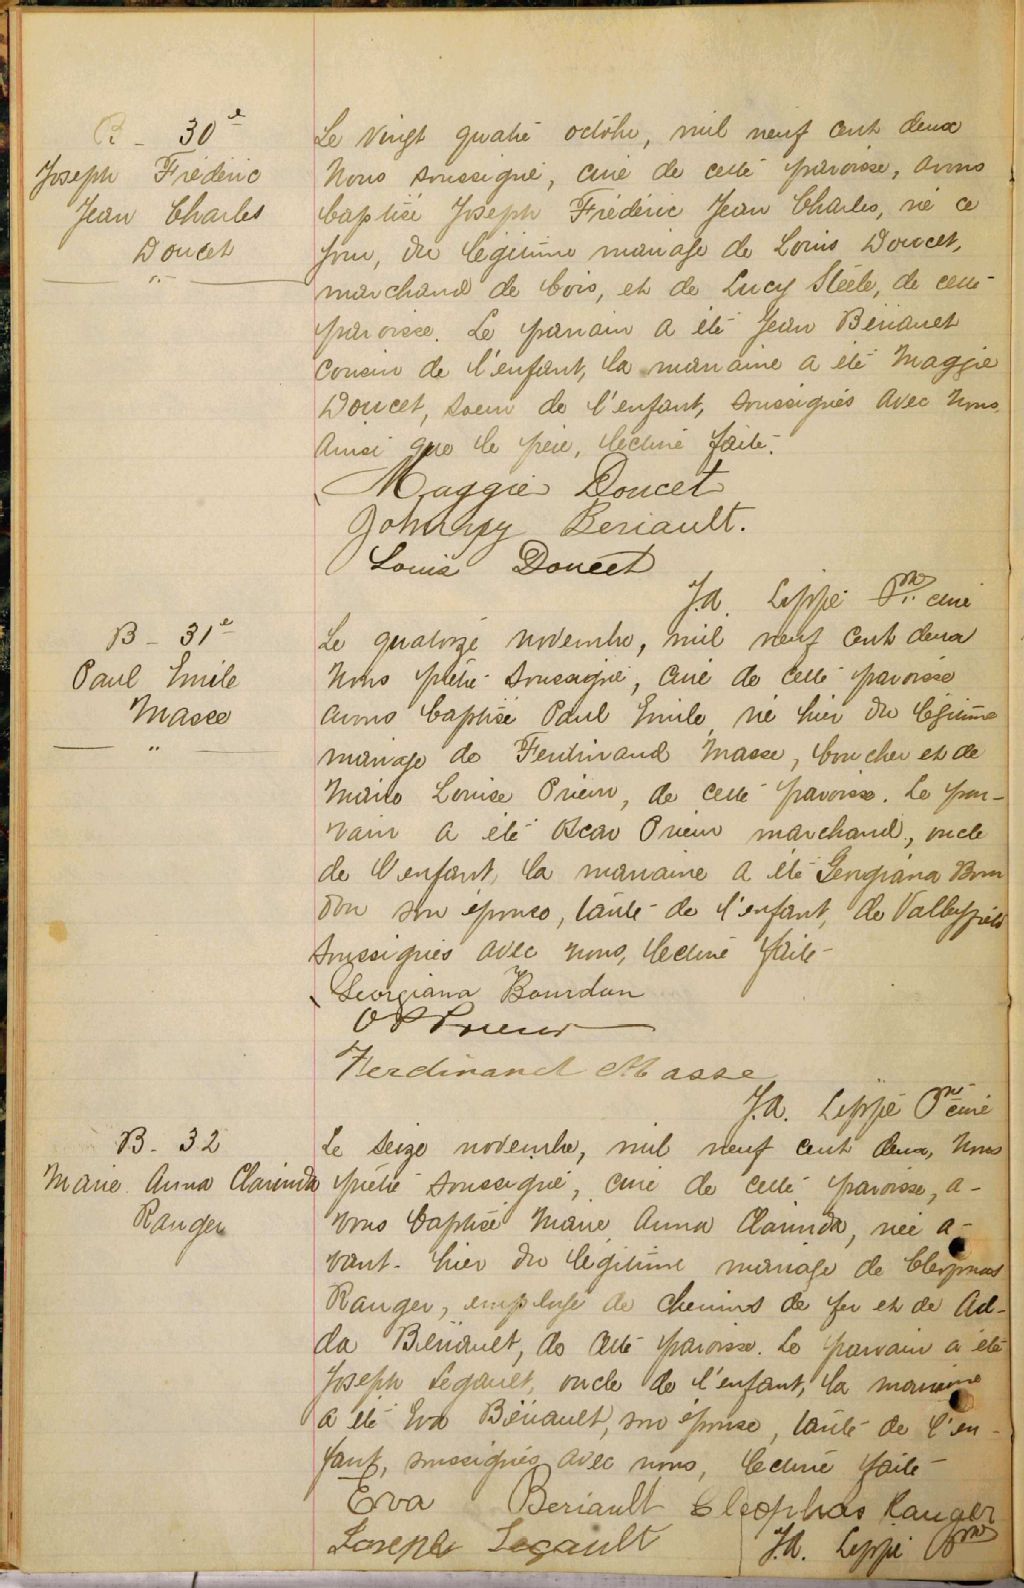 B - 30e
Joseph Frédéric
Jean Charles
Doucet
Le vingt quatre octobre, mil neuf cent deux
Nous soussigné, curé de cette paroisse, avons
baptisé Joseph Frédéric Jean Charles, né ce
jour, du légitime mariage de Louis Doucet,
marchand de bois, et de Lucy Steele, de cette
paroisse. Le parrain a été Jean Bériault
cousin de l'enfant, la marraine a été Maggie
Doucet, soeur de l'enfant, soussignés avec nous
ainsi que le père, lecture faite.
Maggie Doucet
Johnny Beriault.
Louis Doucet
J.A. Lippé Ptre curé
B - 31e
Paul Emile
Masse
Le quatorze novembre, mil neuf cent deux
Nous prêtre soussigné, curé de cette paroisse
avons baptisé Paul Emile, né hier du légitime
mariage de Ferdinand Masse, boucher et de
Marie Louise Prieur, de cette paroisse. Le par-
rain a été Oscar Prieur marchand, oncle
de l'enfant, la marraine a été Georgiana Bour
don son épouse, tante de l'enfant, de Valleyfield
soussignés avec nous, lecture faite
Georgiana Bourdon
O Prieur
Ferdinand Masse
J.A. Lippé Ptre curé
B - 32
Marie Anna Clarinda
Ranger
Le seize novembre, mil neuf cent deux, Nous
prêtre soussigné, curé de cette paroisse, a-
vons baptisé Marie Anna Clarinda, née a-
vant-hier du légitime mariage de Cleophas
Ranger, employé de chemins de fer et de Ad-
da Bériault, de cette paroisse. Le parrain a été
Joseph Legault, oncle de l'enfant, la marraine
a été Eva Bériault, son épouse, tante de l'en-
fant, soussignés avec nous, lecture faite
Eva Beriault Cleophas Ranger
Joseph Legault J.A. Lippé Ptre